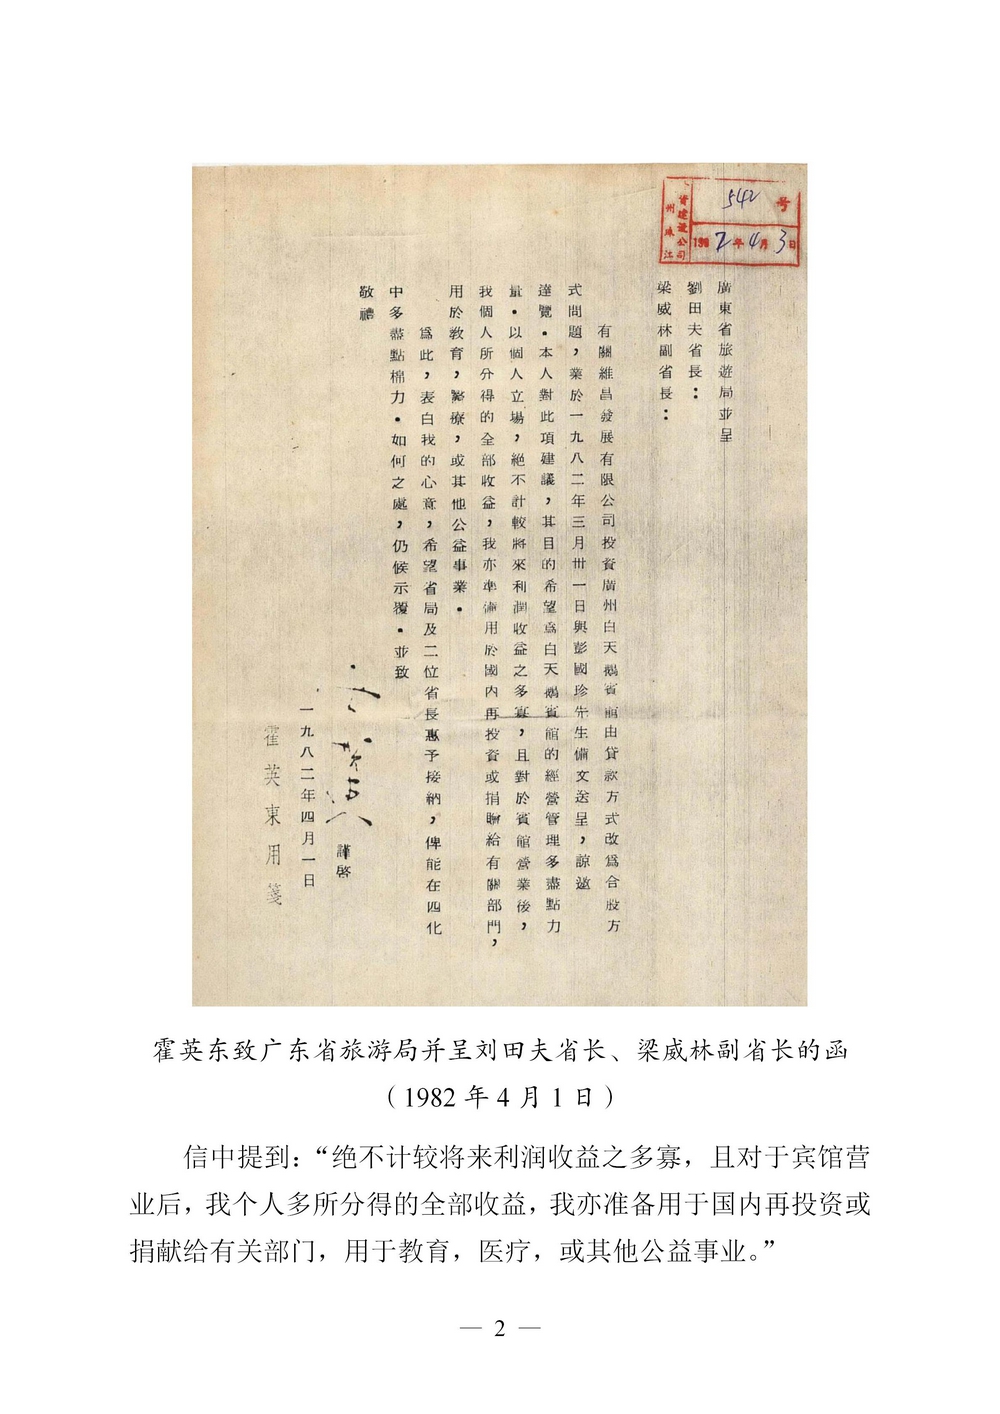 542 号
1982年4月3日
廣東省旅遊局並呈
劉田夫省長：
梁威林副省長：
有關維昌發展有限公司投資廣州白天鵝賓館由貸款方式改為合股方
式問題，業於一九八二年三月卅一日與彭國珍先生備文送呈，諒邀
達覽．本人對此項建議，其目的希望為白天鵝賓館的經營管理多盡點力
量．以個人立場，絕不計較將來利潤收益之多寡，且對於賓館營業後，
我個人所分得的全部收益，我亦準備用於國內再投資或捐贈給有關部門，
用於教育，醫療，或其他公益事業．
為此，表白我的心意，希望省局及二位省長惠予接納，俾能在四化
中多盡點棉力．如何之處，仍候示覆．並致
敬禮
謹啓
一九八二年四月一日
霍英東用箋
霍英东致广东省旅游局并呈刘田夫省长、梁威林副省长的函
（1982 年 4 月 1 日）
信中提到：“绝不计较将来利润收益之多寡，且对于宾馆营
业后，我个人多所分得的全部收益，我亦准备用于国内再投资或
捐献给有关部门，用于教育，医疗，或其他公益事业。”
— 2 —